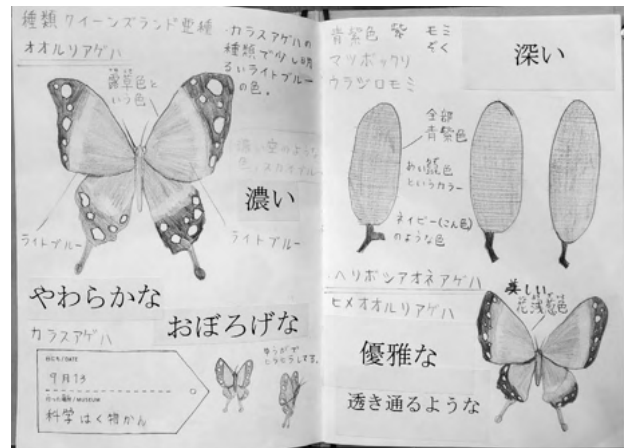 種類クイーンズランド亜種
オオルリアゲハ
・カラスアゲハの
種類で少し明
るいライトブルー
の色。
露草色と
いう色
濃い空のような
色、スカイブルー
濃い
ライトブルー
ライトブルー
やわらかな
おぼろげな
カラスアゲハ
日にち/DATE
9月13
行った場所/MUSEUM
科学はく物かん
青紫色
モミ
ぞく
マツボックリ
ウラジロモミ
深い
全部
青紫色
こい藍色
というカラー
ネイビー(こん色)
のような色
・ヘリボシアオネアゲハ
ヒメオオルリアゲハ
美しい
花浅葱色
優雅な
透き通るような